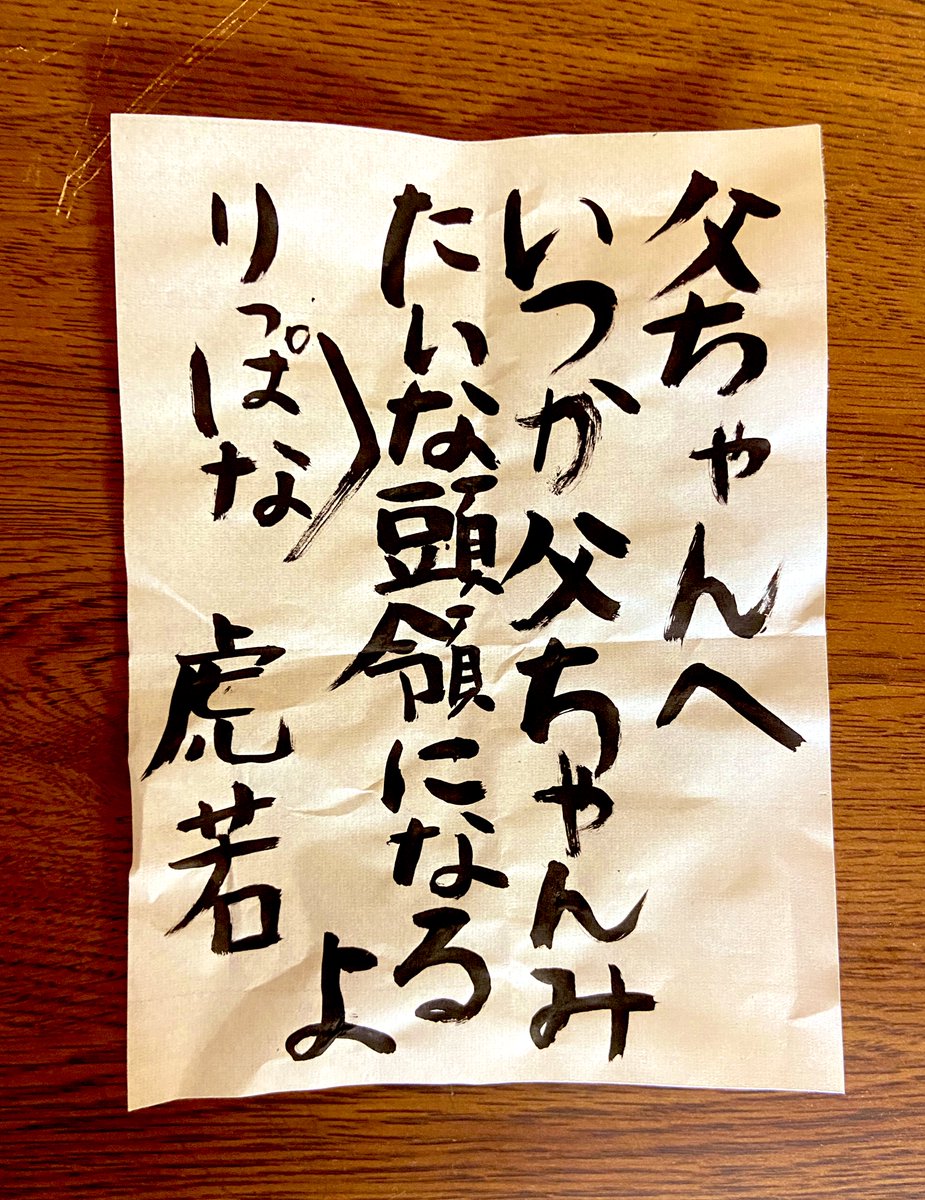 父ちゃんへ
いつか父ちゃんみ
たいな頭領になる
よ
りっぱな
虎若